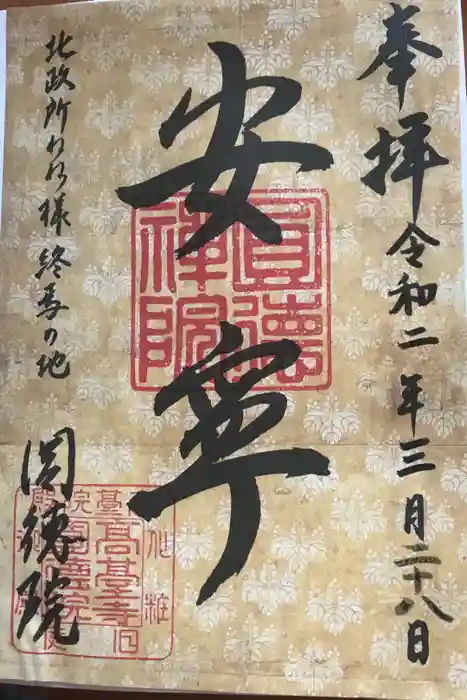 奉拝 令和二年三月二十八日
安寧
北政所ねね様 終焉の地
圓徳院
圓德
禅院
高臺寺